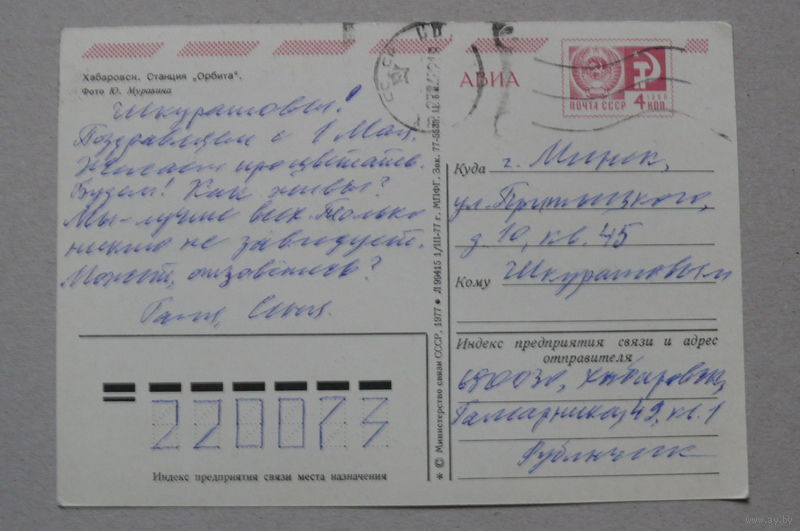 Хабаровск. Станция „Орбита".
Фото Ю. Муравина
Шкуратовы!
Поздравляем с 1 Мая.
Желаем процветать.
Будем! Как живы?
Мы-лучше всех. Только
никто не завидует.
Может, отзовётесь?
Галя, Сеня.
АВИА
ПОЧТА СССР
4 КОП
1966
Куда г. Минск,
ул. Притыцкого,
д. 10, кв. 45
Кому Шкуратовым
Индекс предприятия связи и адрес
отправителя
680030, Хабаровск,
49, кв. 1
Рубинчик
220073
Индекс предприятия связи места назначения
* © Министерство связи СССР, 1977 * Л 99415 1/III-77 г. МПФГ. Зак. 77-5538.
www.ay.by